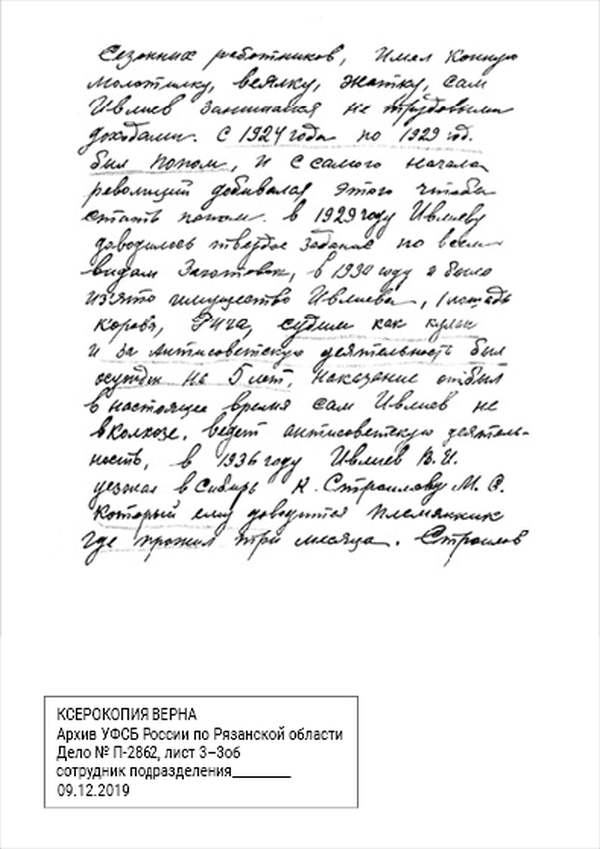 Сезонних работников, Имел Конную
Молотилку, веялку, жатку, сам
Ивлиев занимался не трудовыми
доходами. С 1924 года по 1929 год.
был попом, и с самого начала
революций добивался этого чтобы
стать попом. в 1929 году Ивлиеву
доводилось твердое задание по всем
видам Заготовок, в 1930 году было
изъято имущество Ивлиева, лошадь
корова, Рига, судим как кулак
и за Антисоветскую деятельность был
осужден на 5 лет, наказание отбыл
в настоящее время сам Ивлиев не
в колхозе. ведет антисоветскую деятель-
ность, в 1936 году Ивлиев В.И.
уезжал в Сибирь к. Строилову М. С.
который ему доводится племянник
где прожил три месяца. Строилов
КСЕРОКОПИЯ ВЕРНА
Архив УФСБ России по Рязанской области
Дело № П-2862, лист 3–3об
сотрудник подразделения________
09.12.2019